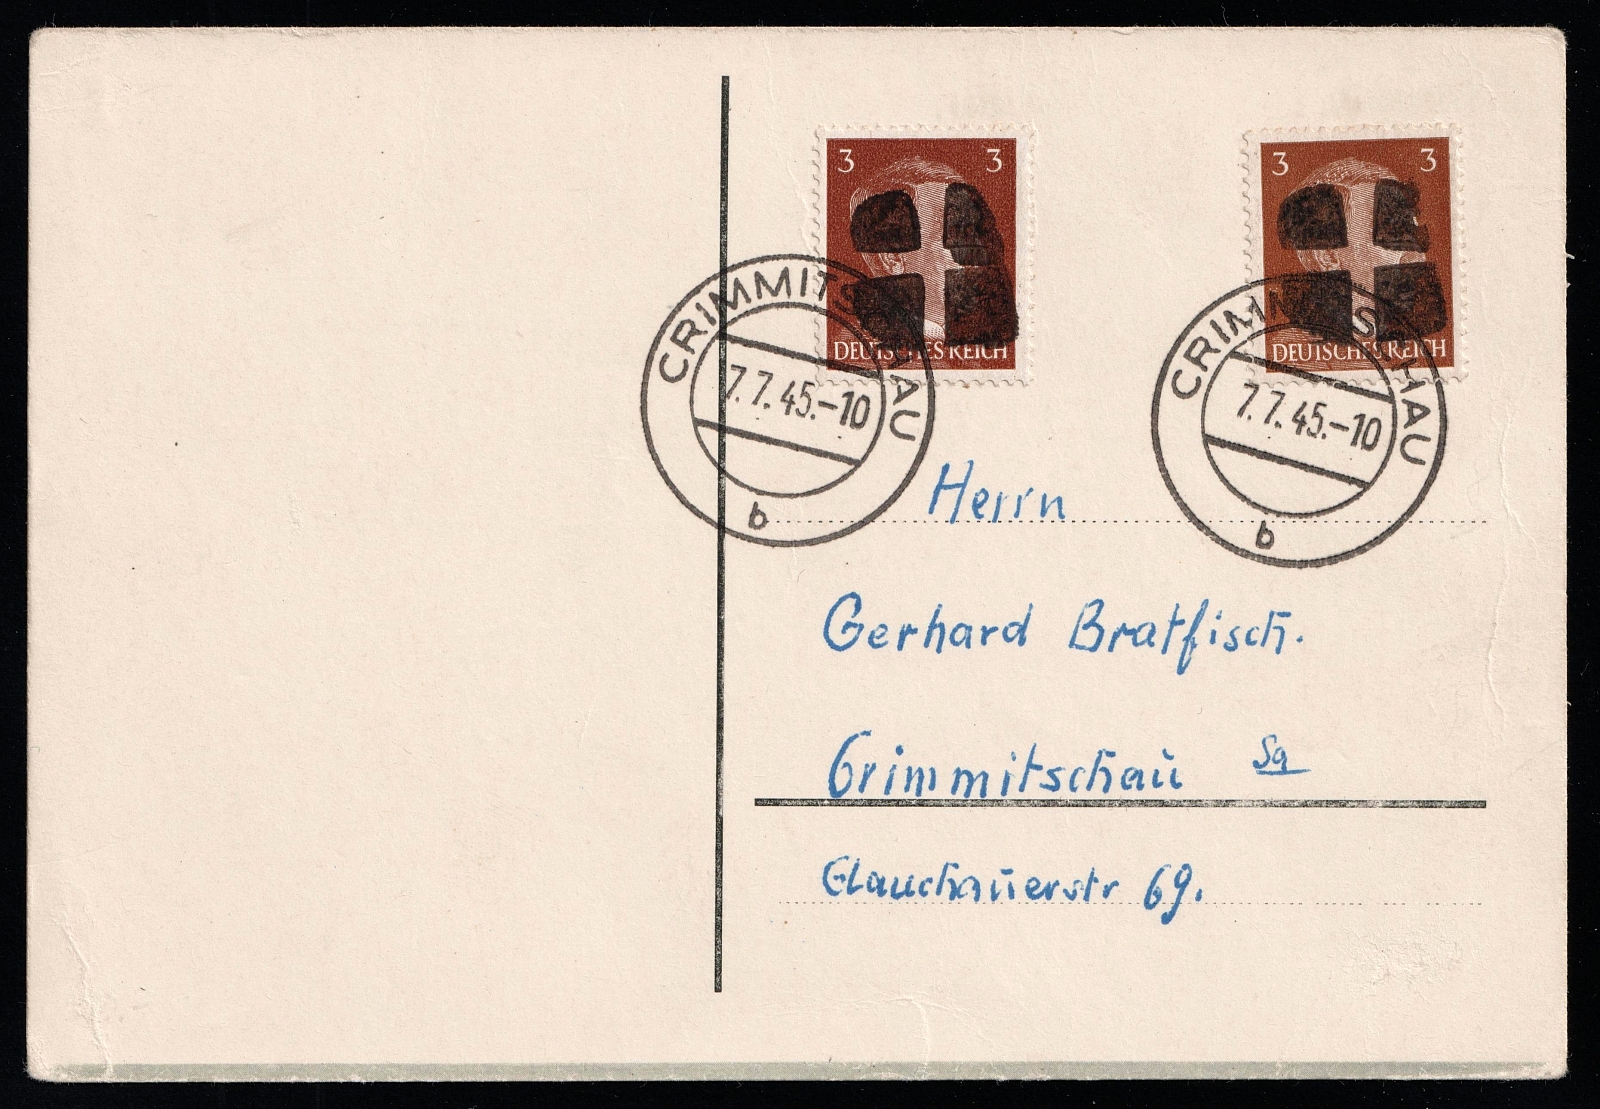 3 3
DEUTSCHES REICH
3 3
DEUTSCHES REICH
CRIMMITSCHAU
7.7.45.-10
b
CRIMMITSCHAU
7.7.45.-10
b
Herrn
Gerhard Bratfisch.
Crimmitschau Sa
Glauchauerstr 69.